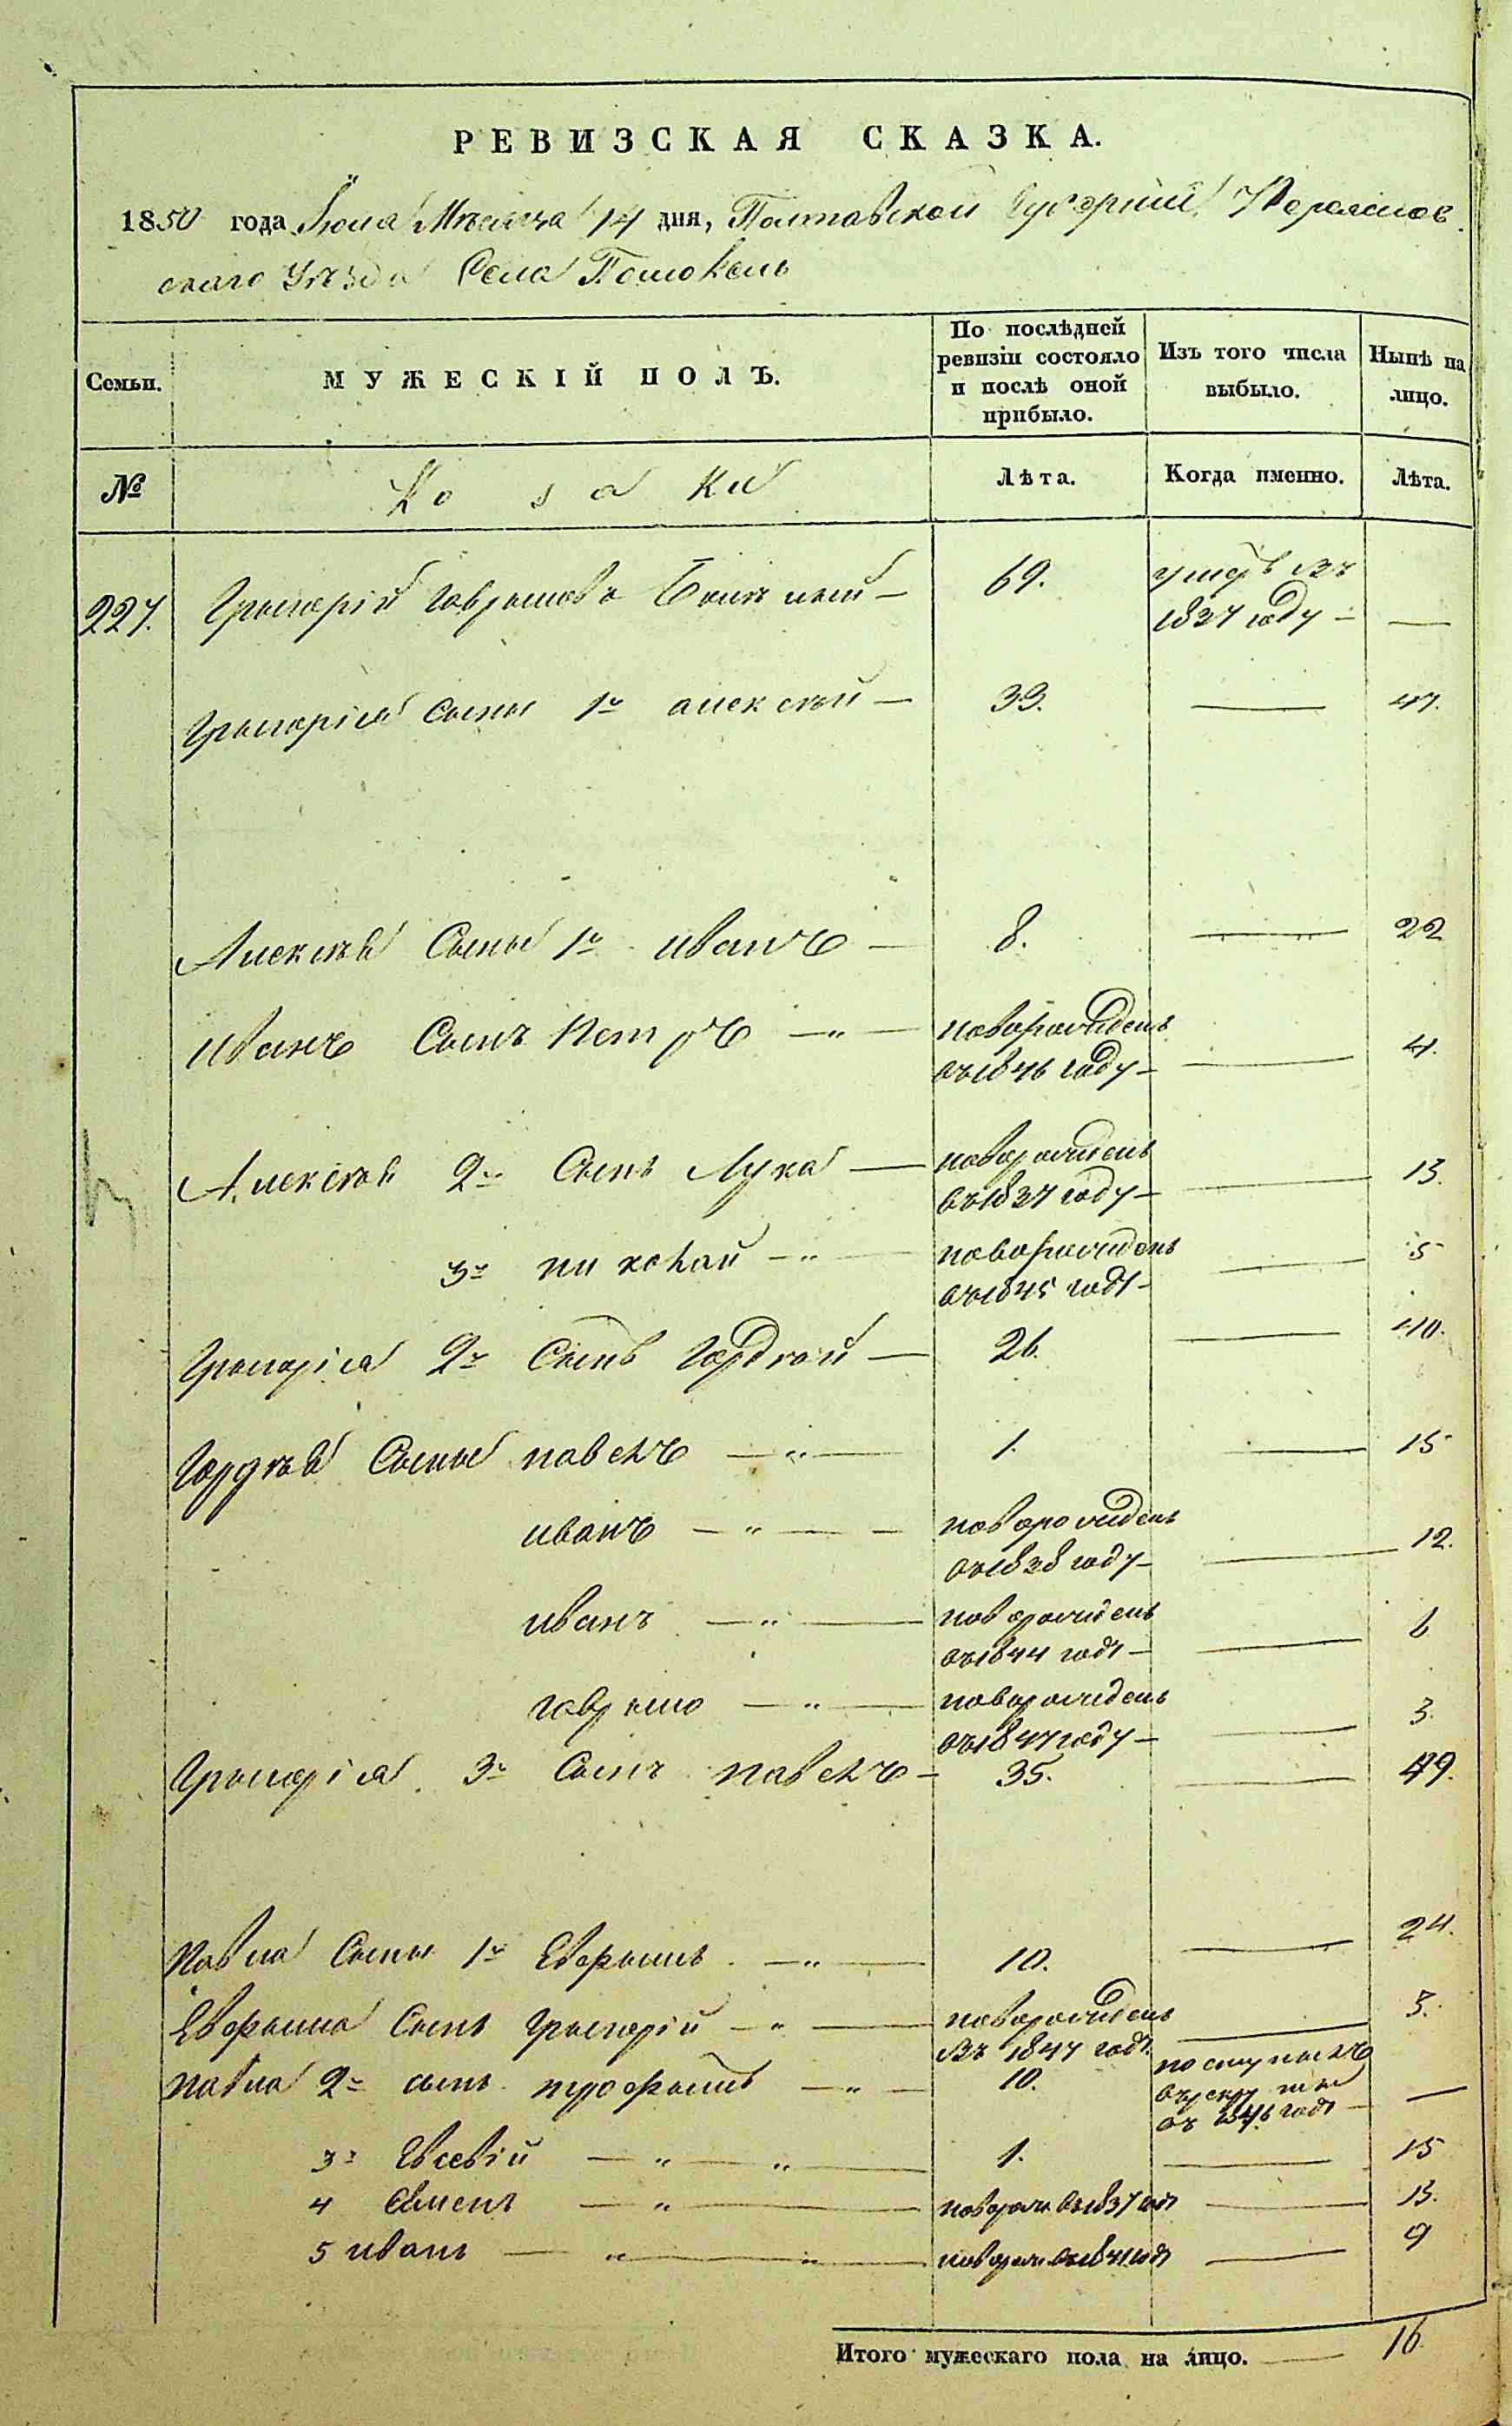 РЕВИЗСКАЯ СКАЗКА.
1850 года Июня Месяца 14 дня, Полтавской Губернии
скаго Уезда Села
Семьи.
МУЖЕСКІЙ ПОЛЪ.
По послѣдней ревизіи состояло и послѣ оной прибыло.
Изъ того числа выбыло.
Нынѣ на лицо.
№
Козаки
Лѣта.
Когда именно.
Лѣта.
227. Григорій Гаврилов 69. умре въ
1837 году —
Григорія сыны 1й алексѣй — 33. — 47.
Алексѣя Сыны 1й иванъ — 8. — 22
иванъ Сынъ петръ — " — новорожденъ
въ 1846 году — 4.
Алексѣя 2й Сынъ Лука — новорожденъ
въ 1837 году — 13.
3й николай — " — новорожденъ
въ 1845 году — 5
Григорія 2й Сынъ Гордѣй — 26. — 40.
Гордѣя Сыны павелъ — " — 1. — 15
иванъ — " — новорожденъ
въ 1838 году — 12.
иванъ — " — новорожденъ
въ 1844 году — 6
гаврило — " — новорожденъ
въ 1847 году — 3.
Григорія 3й Сынъ павелъ — 35. — 49.
Павла Сыны 1й Ефримъ — " — 10. — 24.
Сынъ Григорій — " — новорожденъ
въ 1847 году — 3.
Павла 2й сынъ трофимъ — " — 10. поступилъ
въ рекруты
въ 1846 году —
3й Евсевій — " — " — 1. — 15
4 — " — новорож. въ 1837 году — 13.
5 иванъ — " — " — новорож. въ 1841 году — 9
Итого мужескаго пола на лицо. — 16